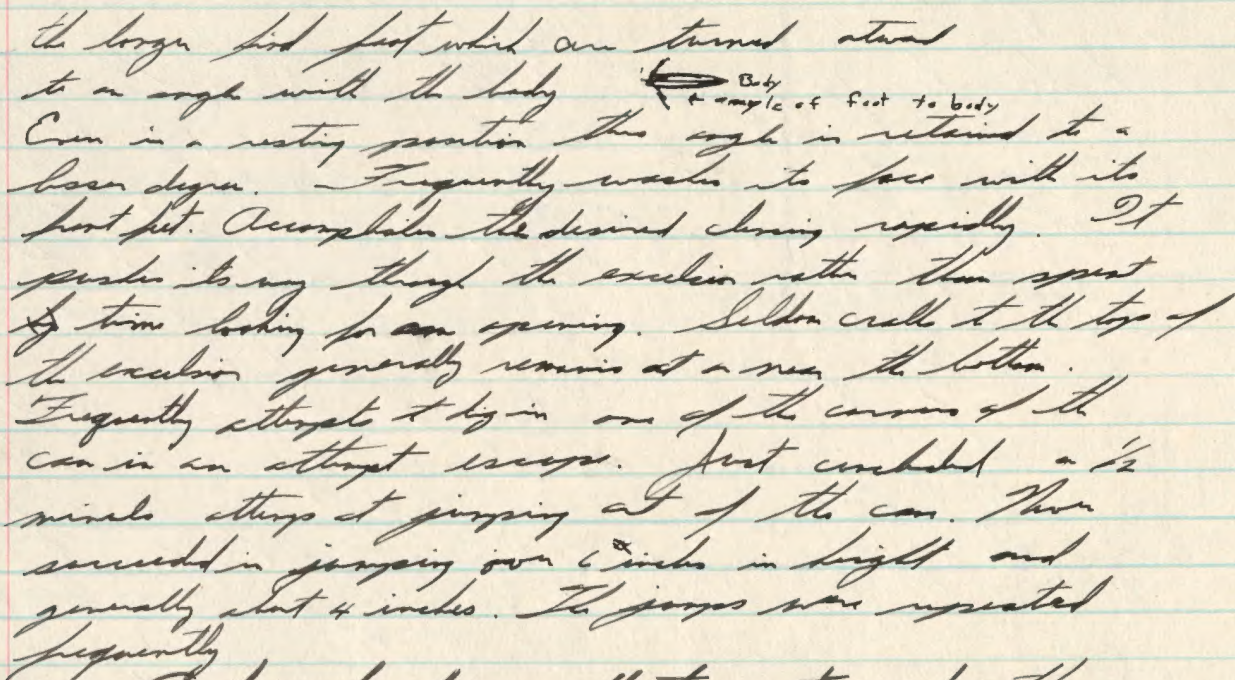 the longer hind feet which are turned otward
to an angle with the body
Body
angle of foot to body
Even in a resting position this angle is retained to a
lesser degree. Frequently washes its face with its
front feet. Accomplishes the desired clening rapidly. It
pushes its way through the excelsior rather than spent
time looking for an opening. Seldom cralls to the tops of
the excelsior generally remains at or near the bottom.
Frequently attempts to dig in one of the corners of the
can in an attempt escape. Just concluded a 1/2
minute attemp at jumping out of the can. Never
succeeded in jumping over 6 inches in height and
generally about 4 inches. The jumps were repeated
frequently